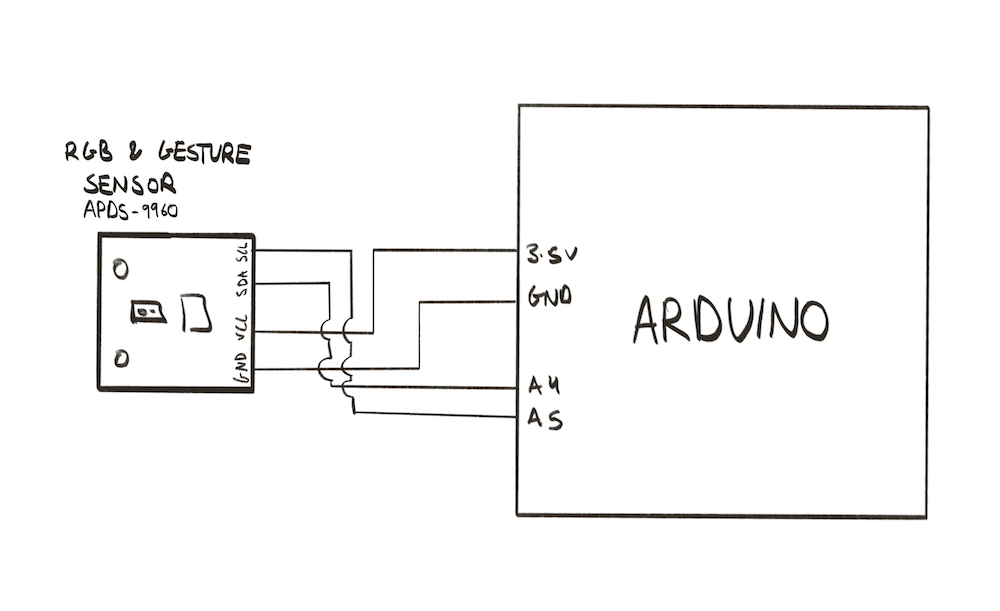 RGB & GESTURE
SENSOR
APDS-9960
SCL
SDA
VCC
GND
3.5V
GND
A4
A5
ARDUINO